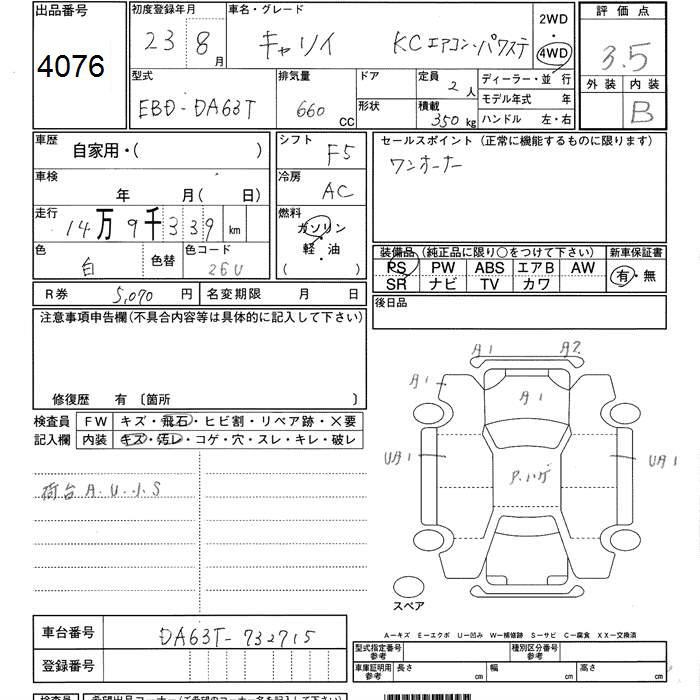 出品番号
4076
初度登録年月
23 8月
車名・グレード
キャリイ KCエアコン・パワステ
2WD
4WD
評価点
3.5
外装 内装
B
型式
EBD-DA63T
排気量
660 CC
ドア
形状
定員 2人
積載 350kg
ディーラー・並行
モデル年式 年
ハンドル 左・右
車歴
自家用・( )
シフト F5
車検
年 月( 日)
冷房 AC
走行
14万9千339 km
燃料
ガソリン
・
軽・油
( )
色
白
色替
色コード
26U
セールスポイント(正常に機能するものに限ります)
ワンオーナー
装備品(純正品に限り○をつけて下さい) 新車保証書
PS PW ABS エアB AW 有・無
SR ナビ TV カワ
R券 5,070円 名変期限 月 日
後日品
注意事項申告欄(不具合内容等は具体的に記入して下さい)
修復歴 有〔箇所 〕
検査員 FW キズ・飛石・ヒビ割・リペア跡・×要
記入欄 内装 キズ・汚レ・コゲ・穴・スレ・キレ・破レ
荷台 A.U.小S
A1 A2
A1 A1
UA1 P.ハゲ UA1
スペア
車台番号 DA63T-732715
登録番号
A-キズ E-エクボ U-凹み W-補修跡 S-サビ C-腐食 XX-交換済
型式指定番号 参考 種別区分番号 参考
車庫証明用 参考 長さ cm 幅 cm 高さ cm
検査員 希望出品コーナー(ご希望のコーナー名を記入下さい)